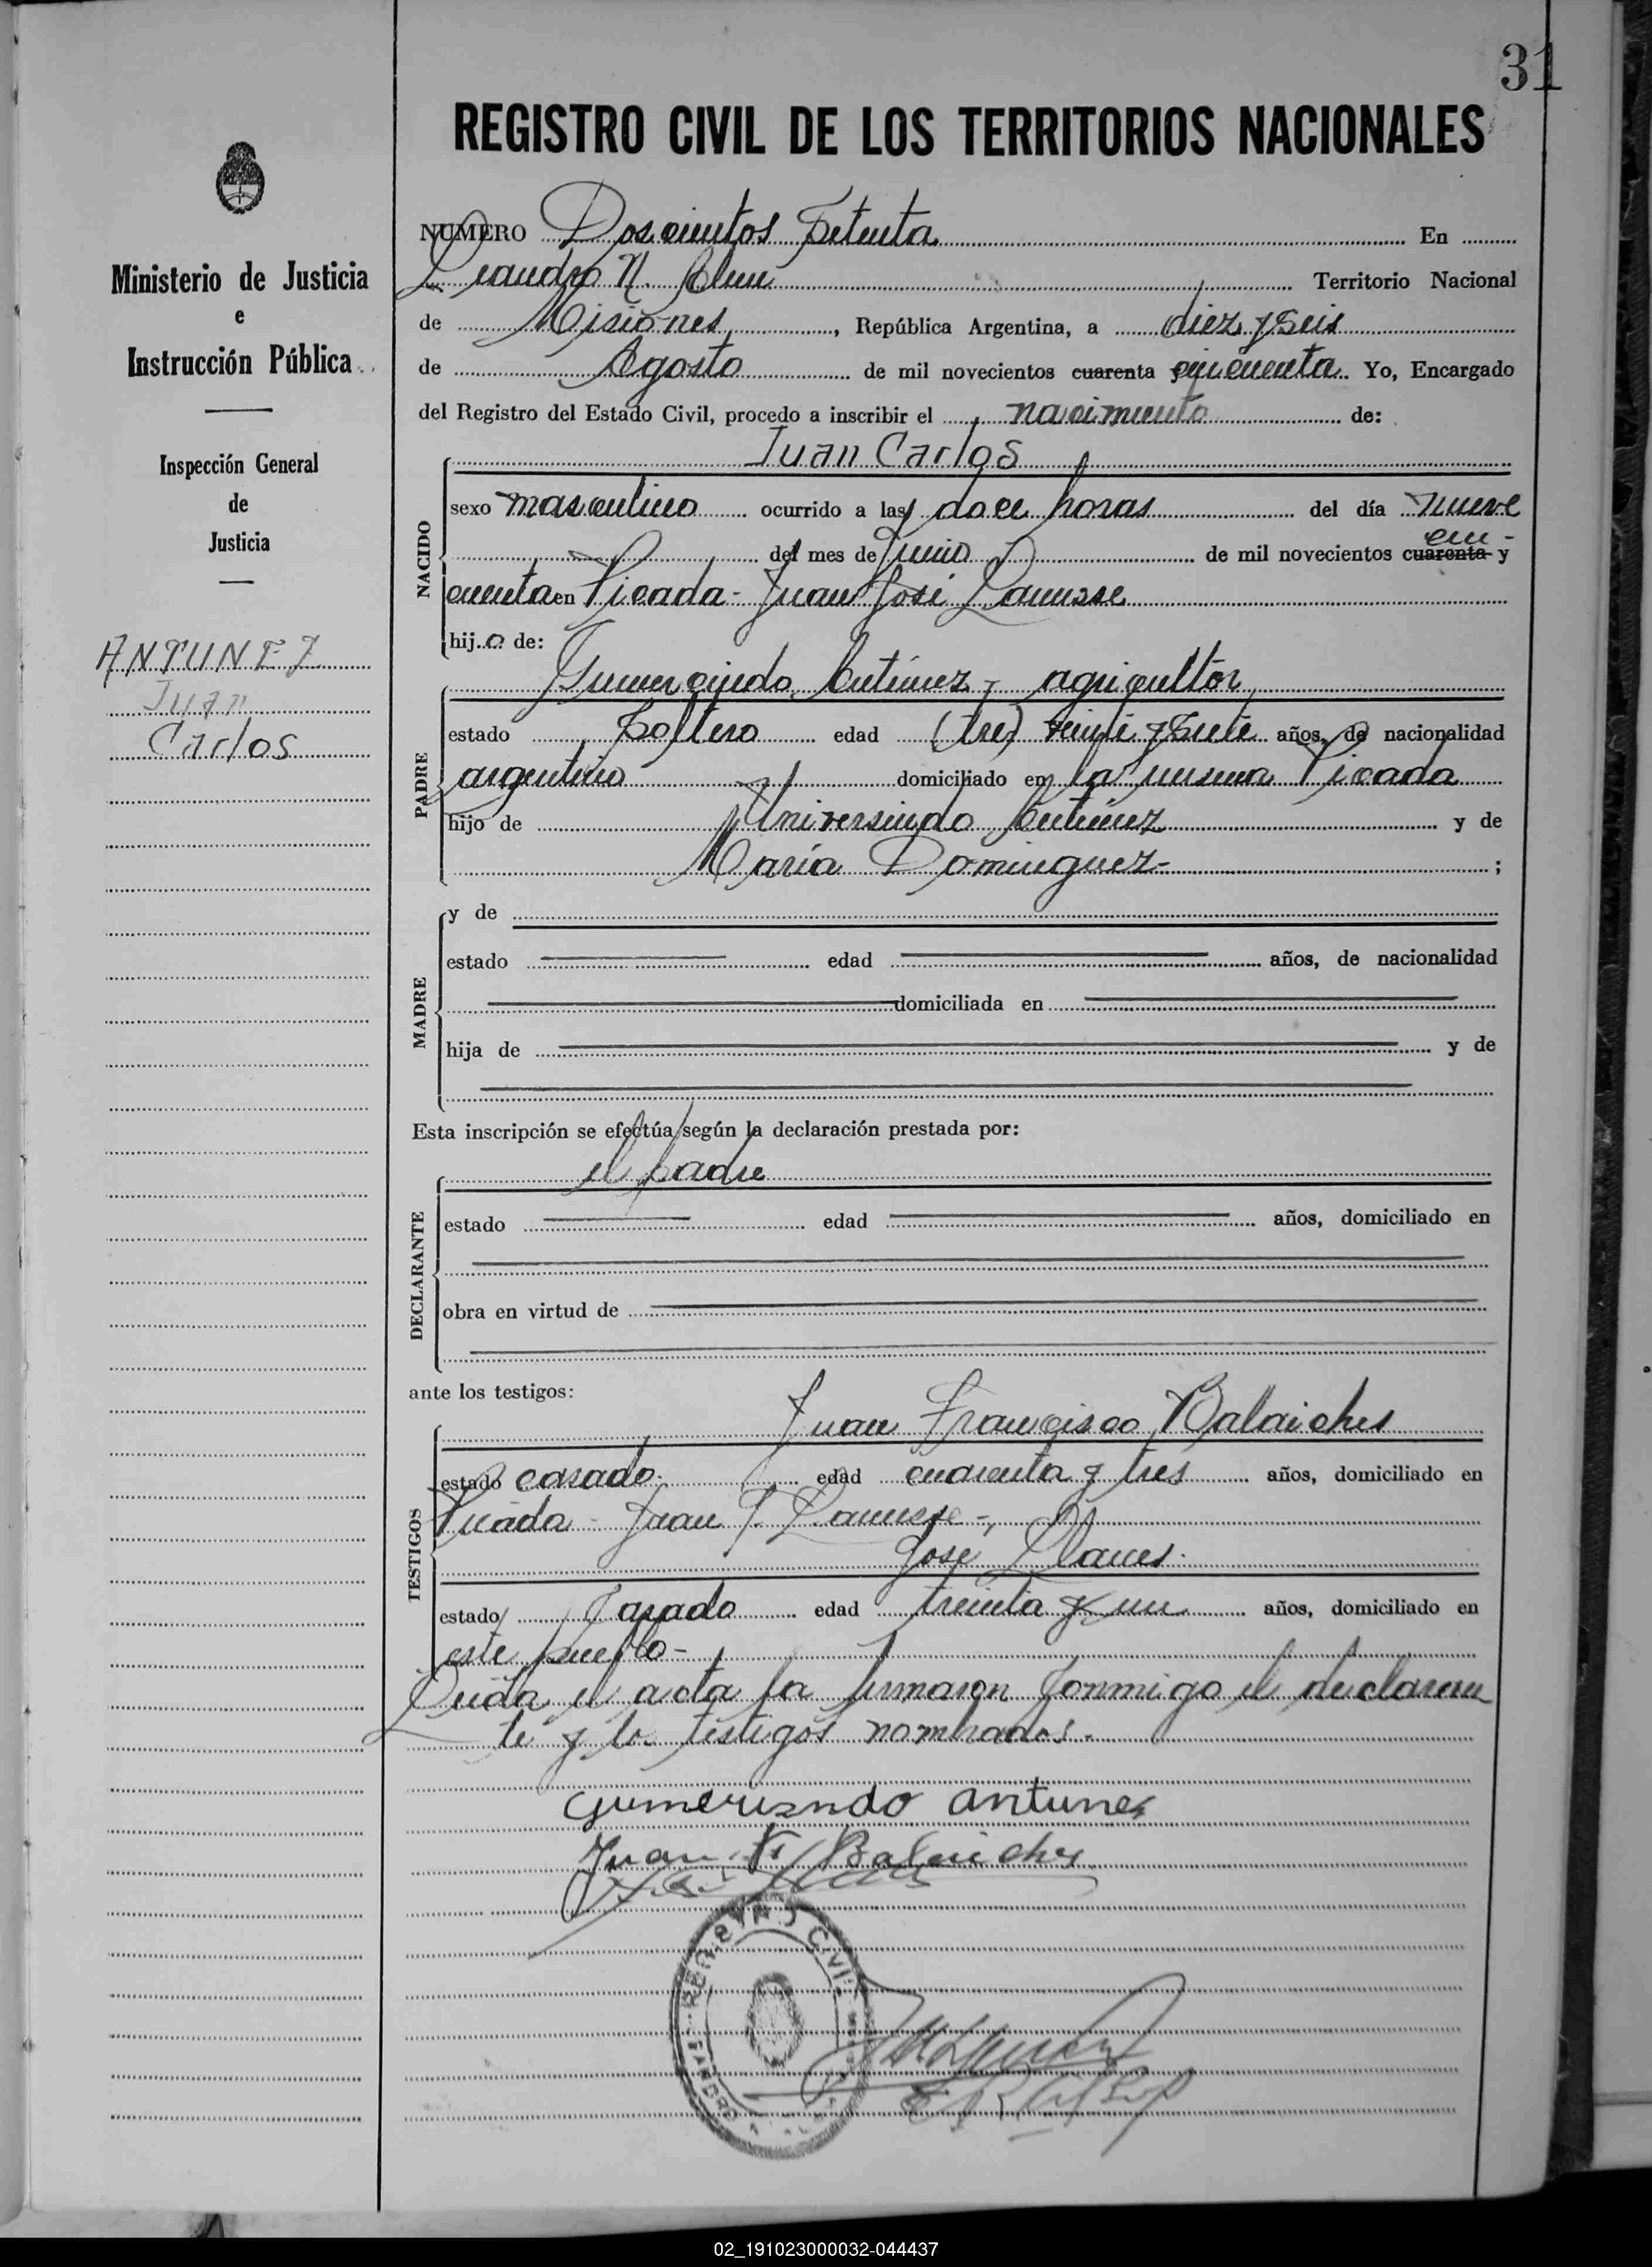 31
REGISTRO CIVIL DE LOS TERRITORIOS NACIONALES
Ministerio de Justicia
e
Instrucción Pública
Inspección General
de
Justicia
ANTUNEZ
Juan
Carlos
NUMERO Doscientos Setenta En
Leandro N. Alem Territorio Nacional
de Misiones, República Argentina, a diez y seis
de Agosto de mil novecientos cuarenta y cincuenta. Yo, Encargado
del Registro del Estado Civil, procedo a inscribir el nacimiento de:
Juan Carlos
NACIDO
sexo masculino ocurrido a las doce horas del día nueve
del mes de Junio de mil novecientos cuarenta y cin-
cuenta en Picada - Juan José Lanusse
hijo de:
Gumercindo Antunez - agricultor,
PADRE
estado soltero edad (tre) veinte y siete años, de nacionalidad
argentino domiciliado en la misma Picada
hijo de Universindo Antunez y de
María Dominguez- ;
MADRE
y de
estado edad años, de nacionalidad
domiciliada en
hija de y de
Esta inscripción se efectúa según la declaración prestada por:
el padre
DECLARANTE
estado edad años, domiciliado en
obra en virtud de
ante los testigos:
Juan Francisco Balaiches
TESTIGOS
estado casado. edad cuarenta y tres años, domiciliado en
Picada - Juan J. Lanusse -,
José Llanes.
estado casado edad treinta y un años, domiciliado en
este pueblo-
Leida el acta la firmaron conmigo el declaran
te y los testigos nombrados.
Gumersindo antunes
Juan F. Balaiches
REGISTRO CIVIL
02_191023000032-044437